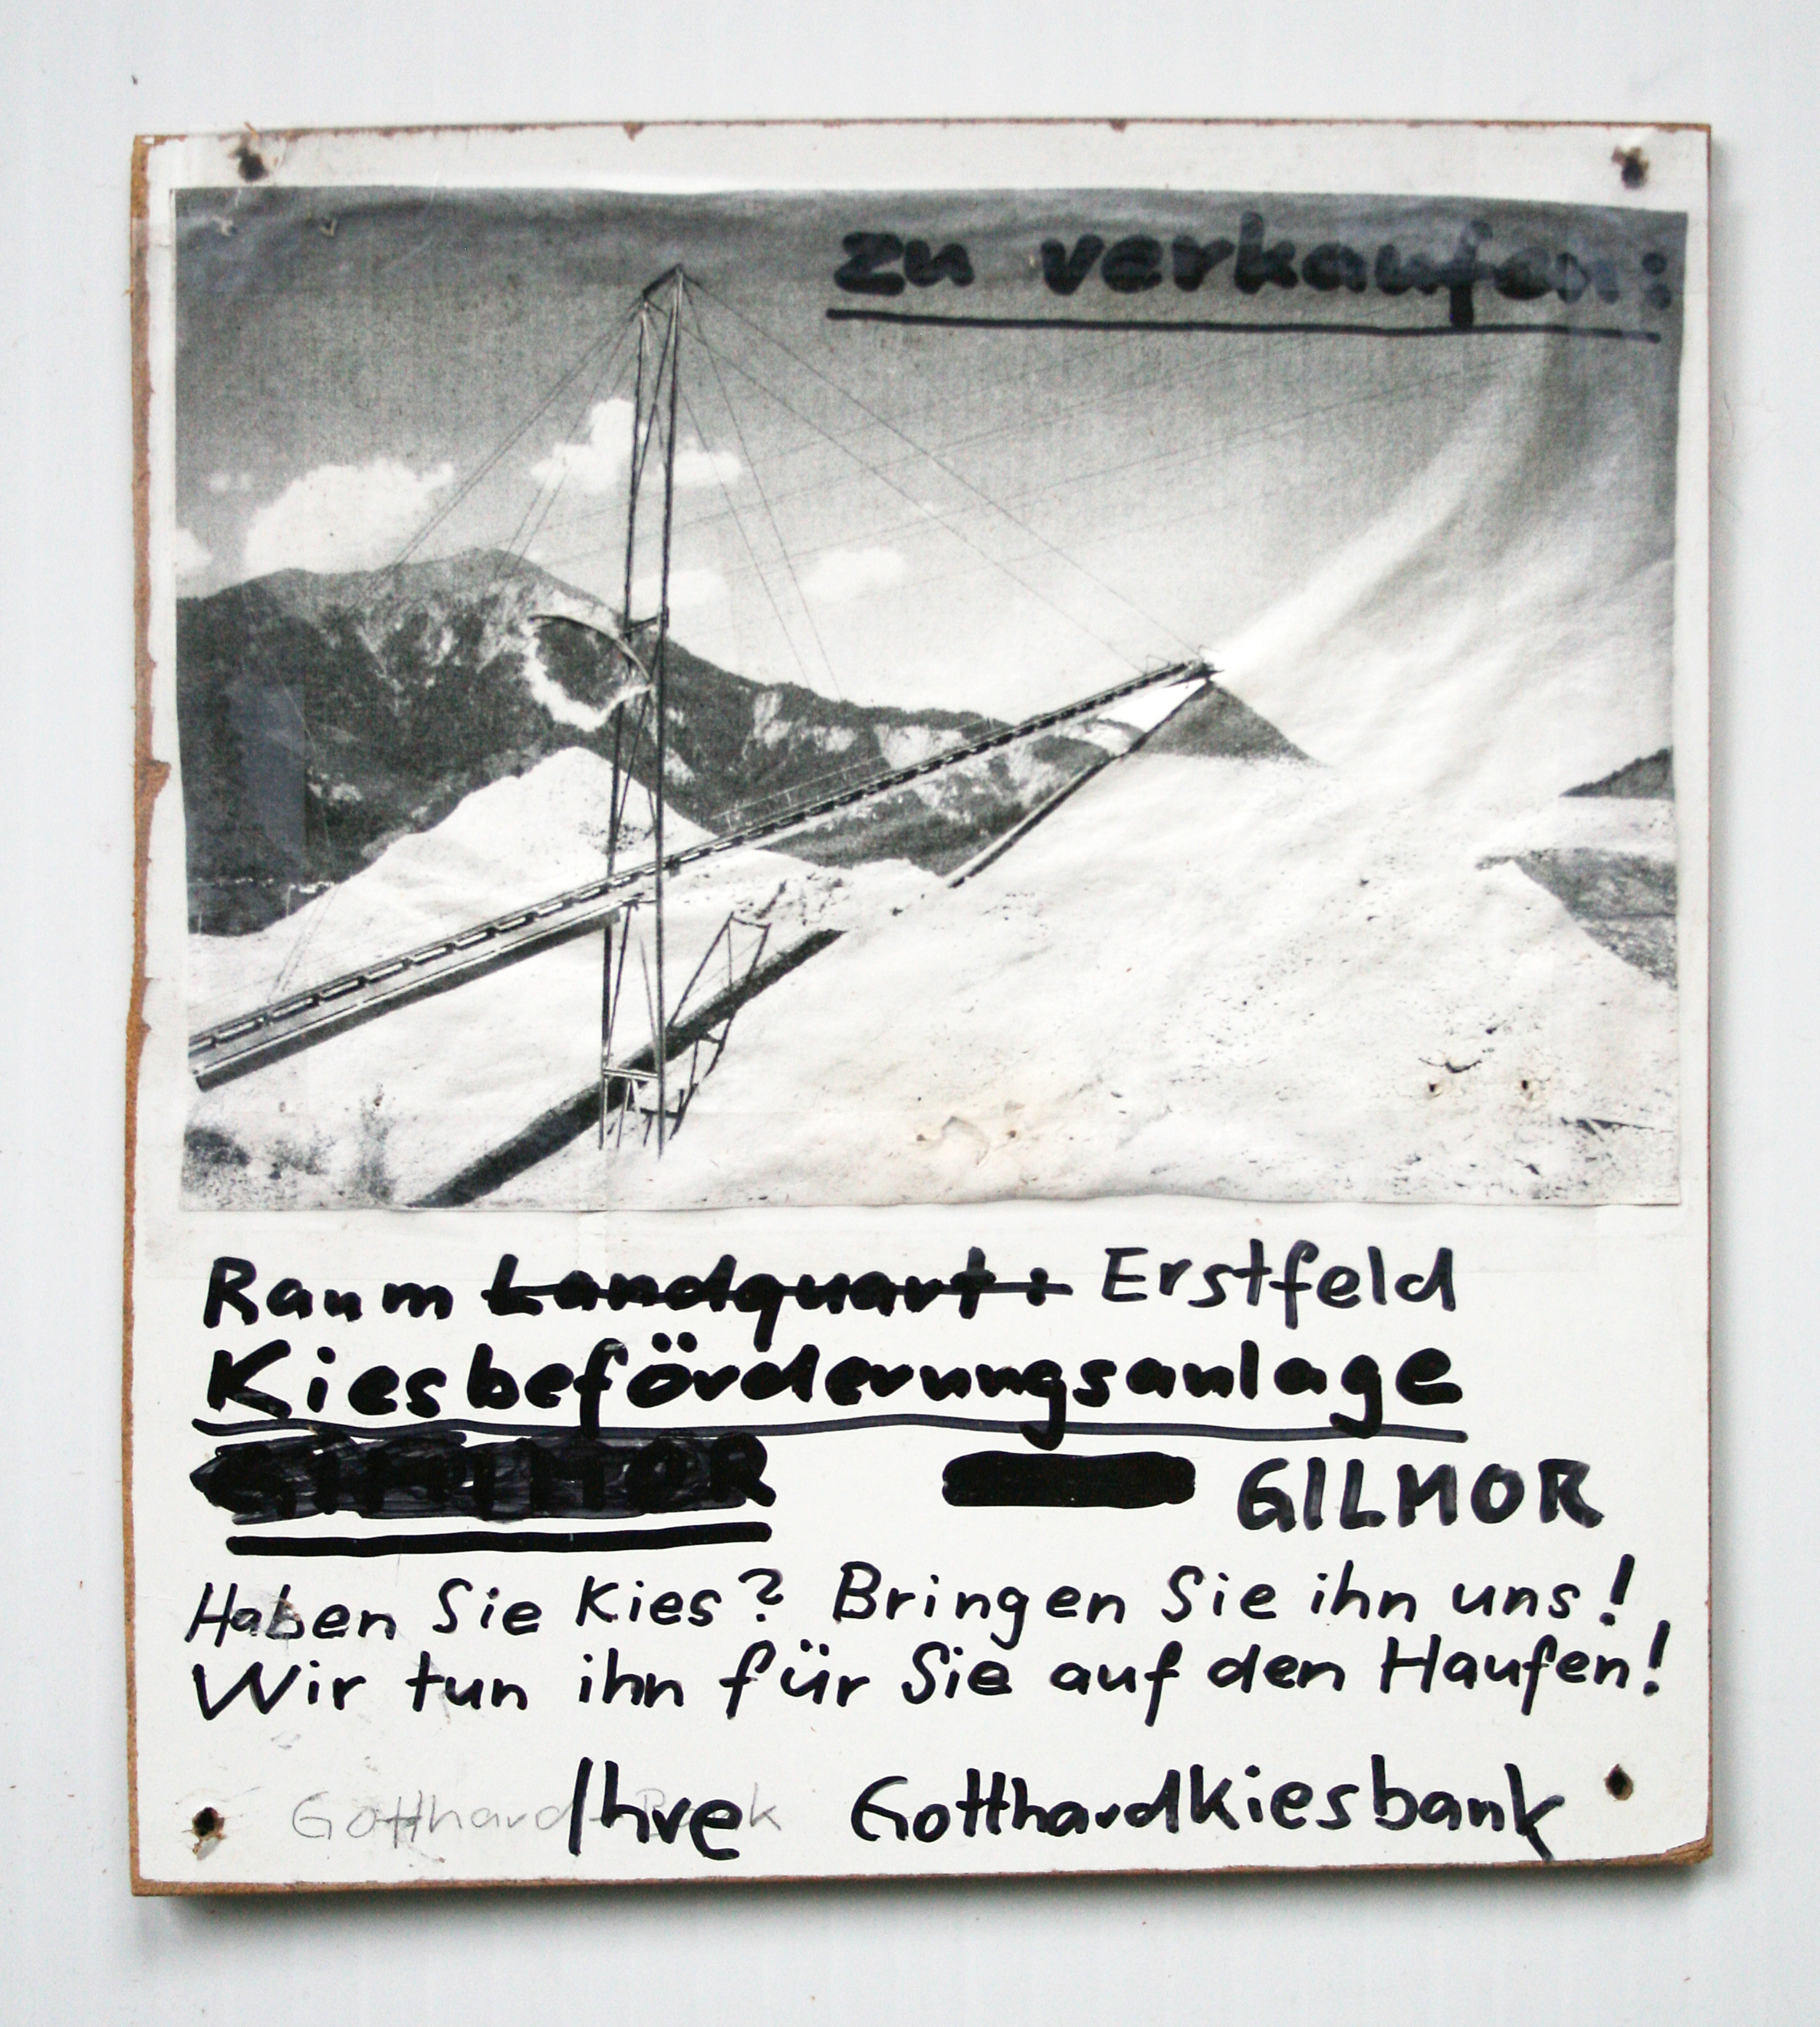 zu verkaufen:
Raum Landquart: Erstfeld
Kiesbeförderungsanlage
GILMOR
Haben Sie Kies? Bringen Sie ihn uns!
Wir tun ihn für Sie auf den Haufen!
Gotthard-Bank Ihre Gotthardkiesbank